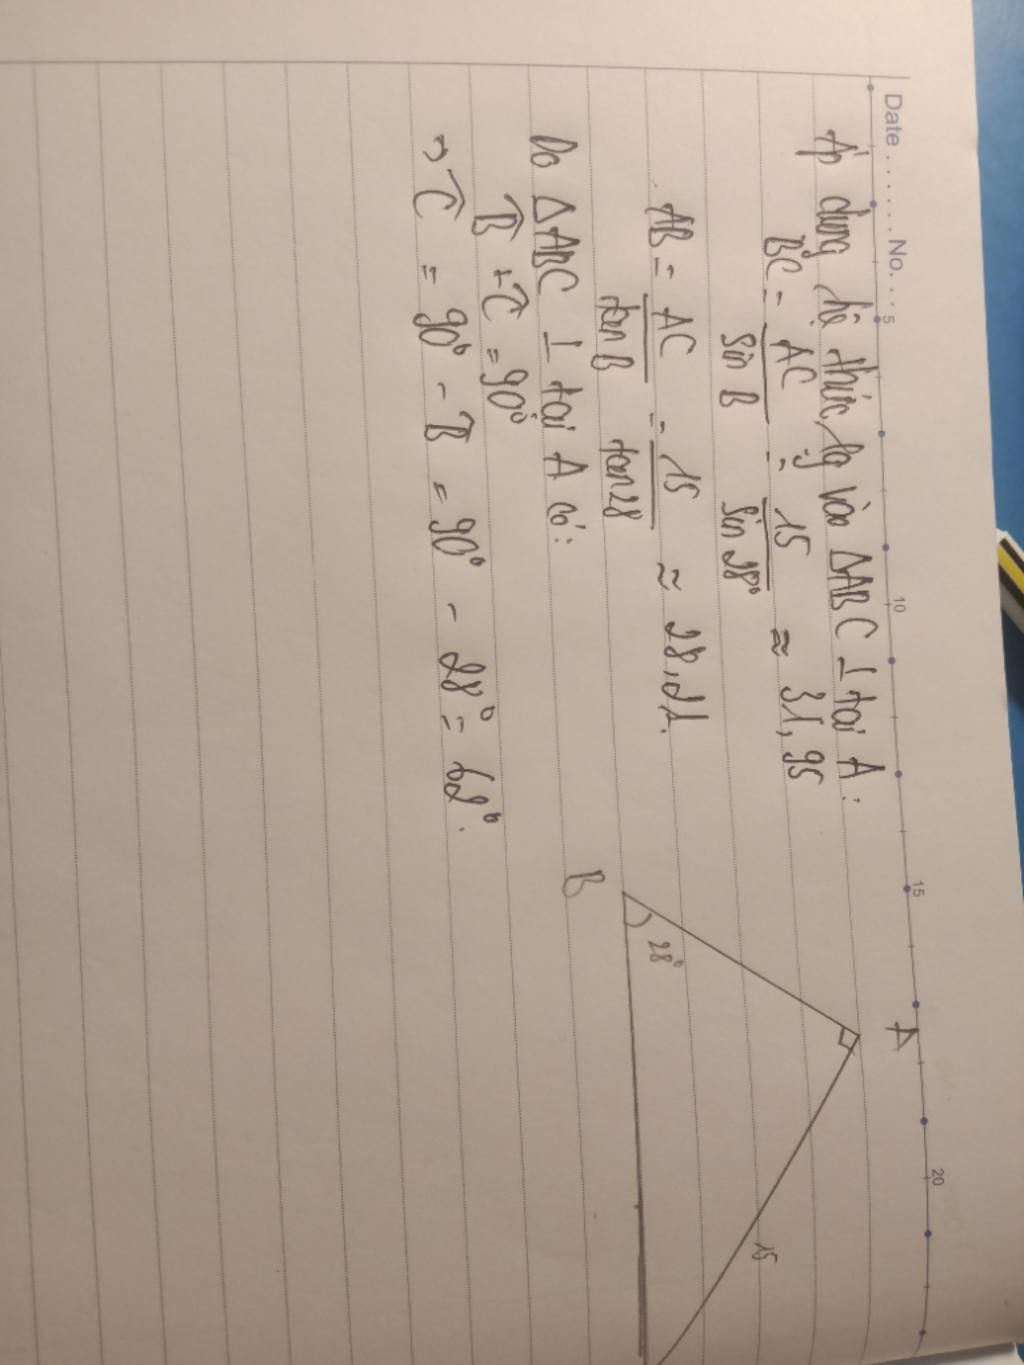 Date ........ No....
5
10
15
20
Áp dụng hệ thức lg vào ΔABC ⊥ tại A:
BC = AC / sin B = 15 / sin 28° ≈ 31,95
AB = AC / tan B = 15 / tan 28 ≈ 28,21.
Do ΔABC ⊥ tại A có:
B̂ + Ĉ = 90°
⇒ Ĉ = 90° - B̂ = 90° - 28° = 62°.
A
B
28°
15